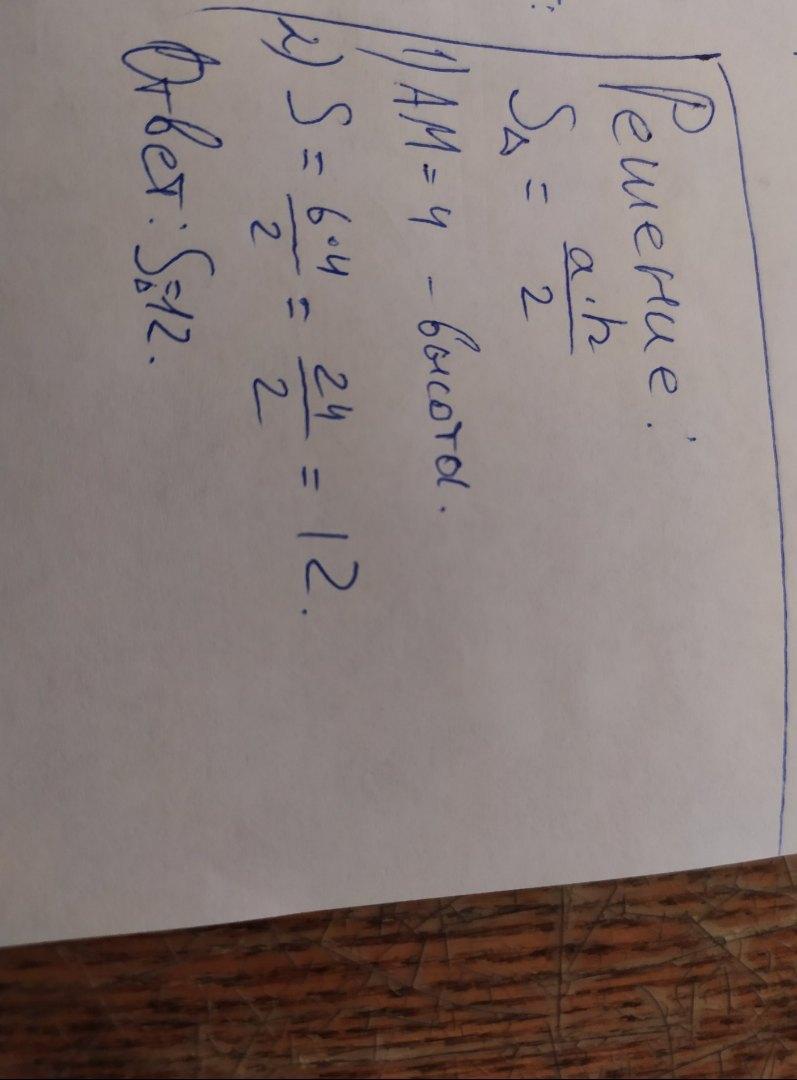 Решение:
S△ = a·h/2
1) AM = 4 - высота.
2) S = 6·4/2 = 24/2 = 12.
Ответ: S△=12.